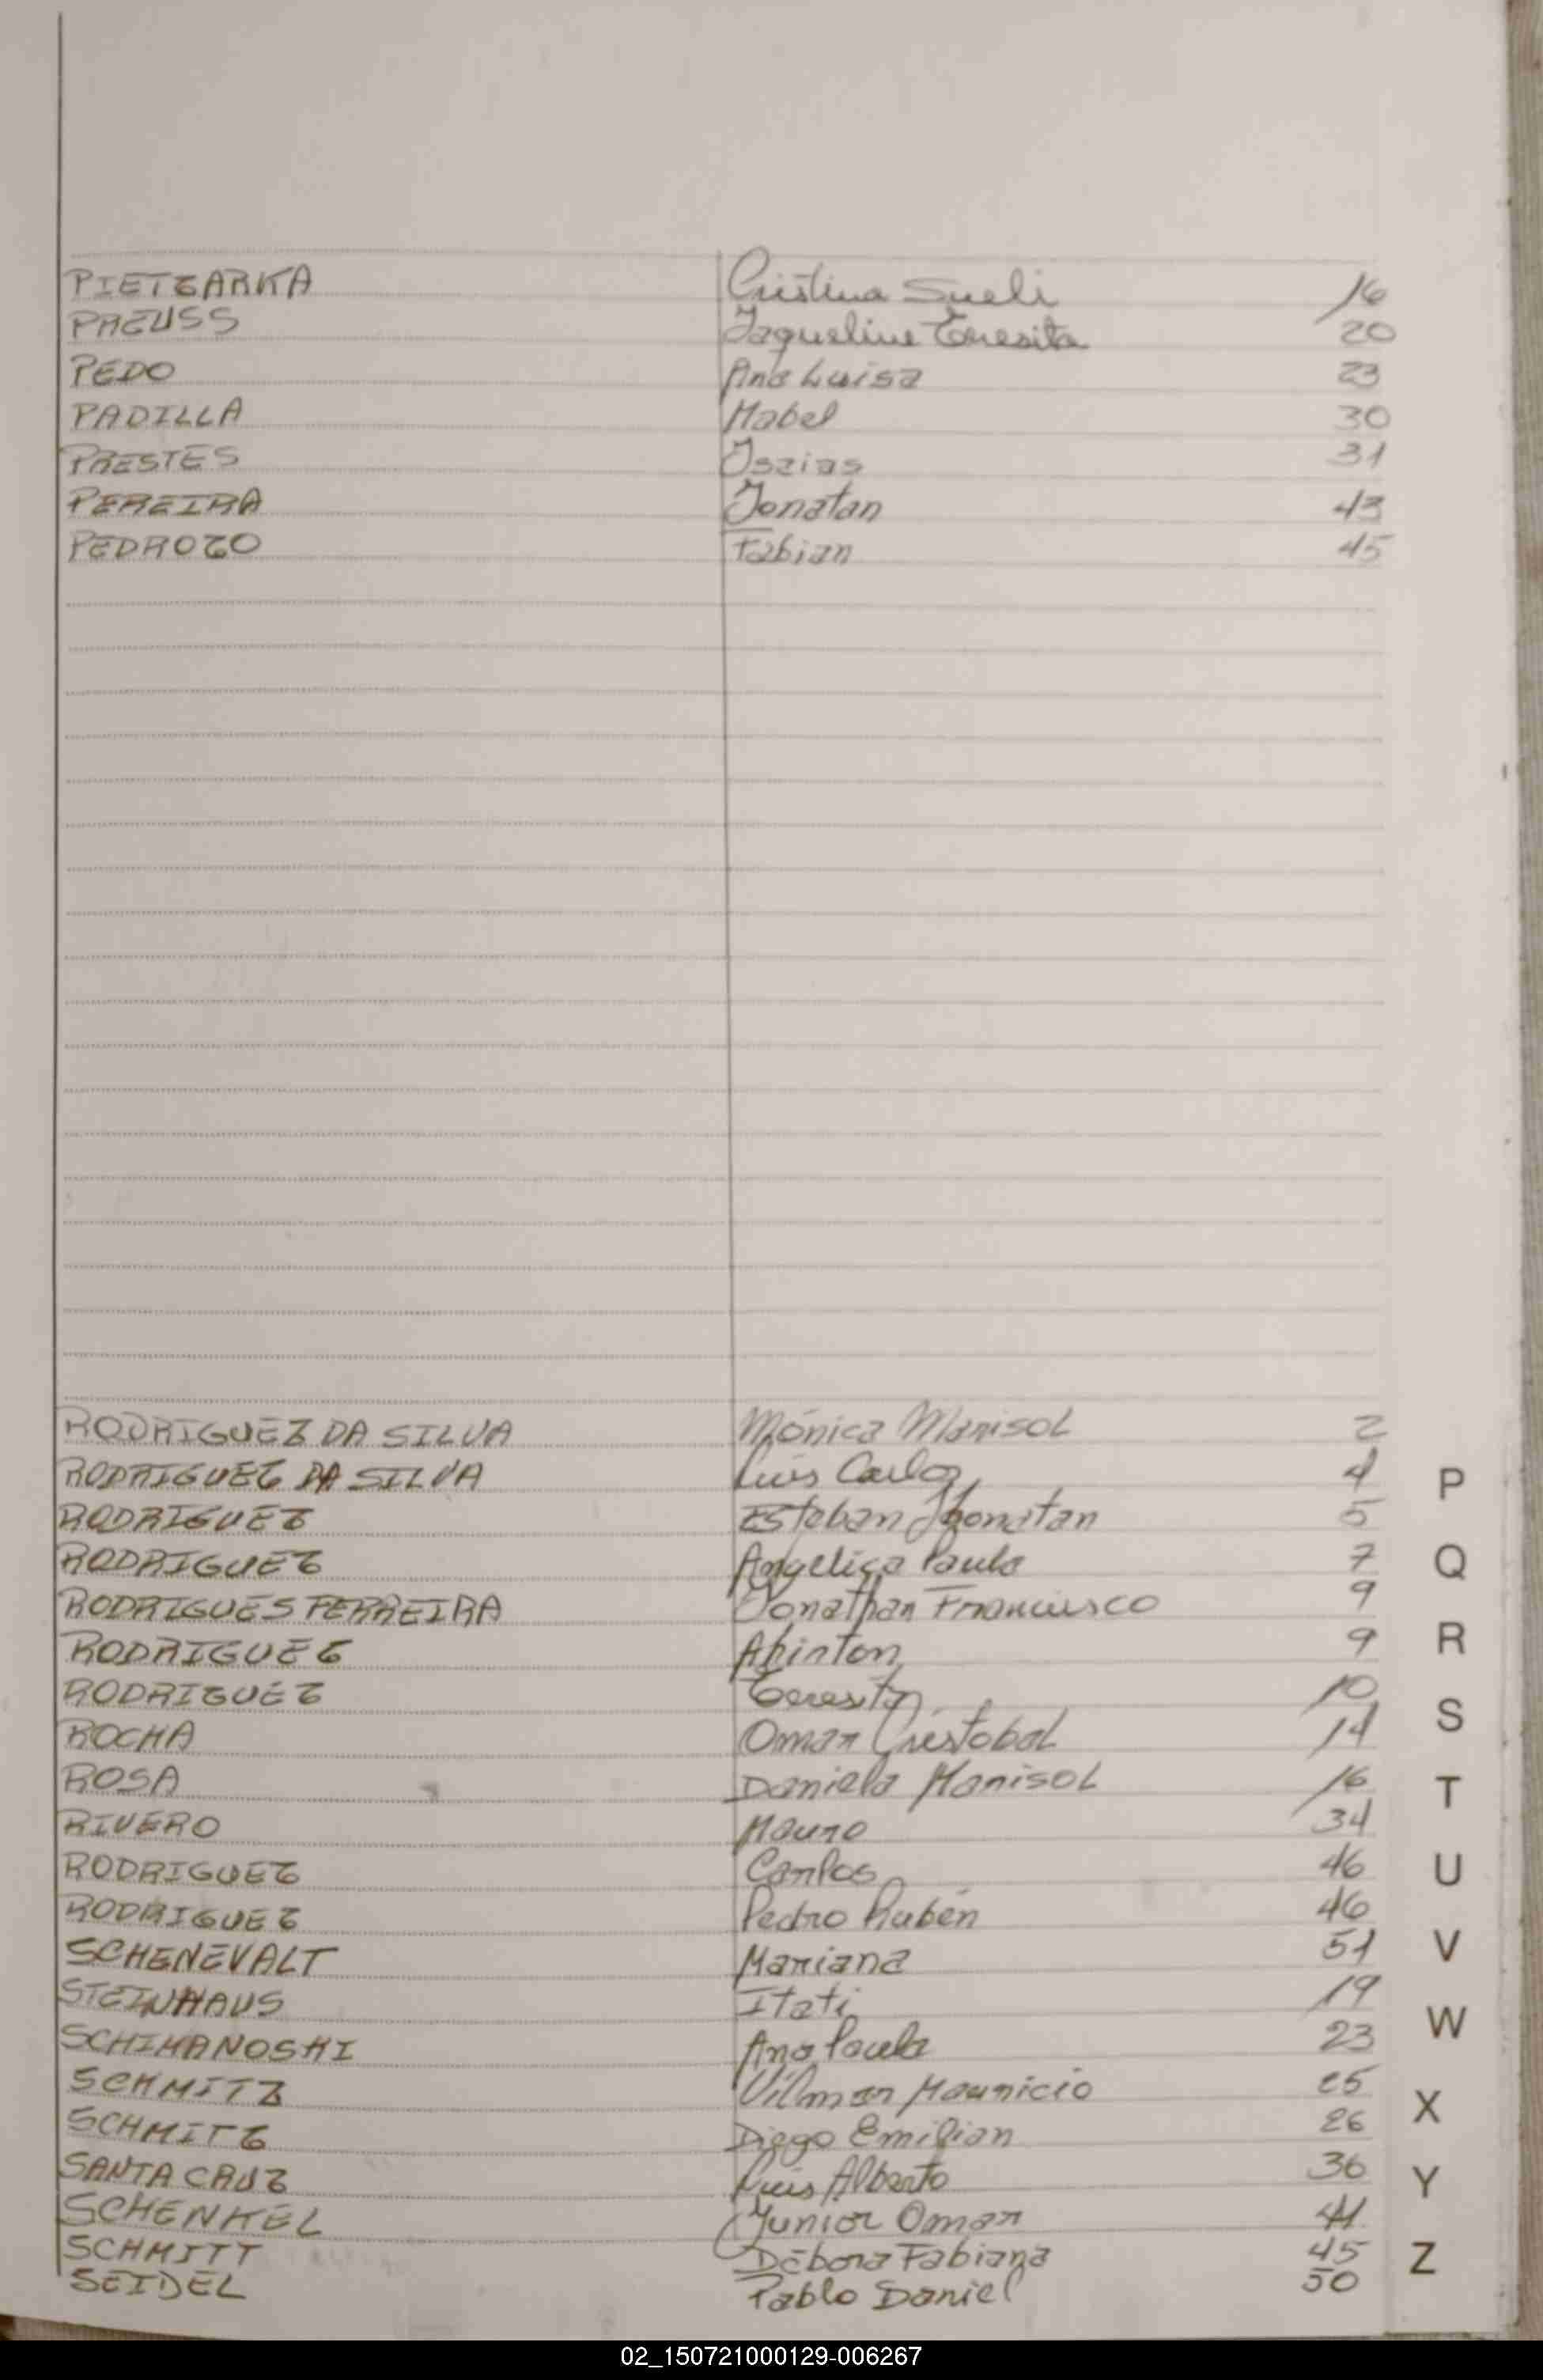 PIETZARKA Cristina Sueli 16
PREUSS Jaqueline Teresita 20
PEDO Ana Luisa 23
PADILLA Mabel 30
PRESTES Isaias 31
PEREIRA Jonatan 43
PEDROZO Fabian 45
RODRIGUEZ DA SILVA Mónica Marisol 2
RODRIGUEZ DA SILVA Luis Carlos 4 P
RODRIGUEZ Esteban Jhonatan 5
RODRIGUEZ Angelica Paula 7 Q
RODRIGUES FERREIRA Jonathan Francisco 9
RODRIGUEZ 9 R
RODRIGUEZ Teresita 10
ROCHA Omar Cristobal 14 S
ROSA Daniela Marisol 16 T
RIVERO Mauro 34
RODRIGUEZ Carlos 46 U
RODRIGUEZ Pedro Rubén 46
SCHENEVALT Mariana 51 V
STEINHAUS Itati 19
SCHIMANOSKI Ana Paula 23 W
SCHMITZ Vilmar Mauricio 25 X
SCHMITZ Diego Emilian 26
SANTA CRUZ Luis Alberto 36 Y
SCHENKEL Junior Omar
SCHMITT Débora Fabiana 45 Z
SEIDEL Pablo Daniel 50
02_150721000129-006267